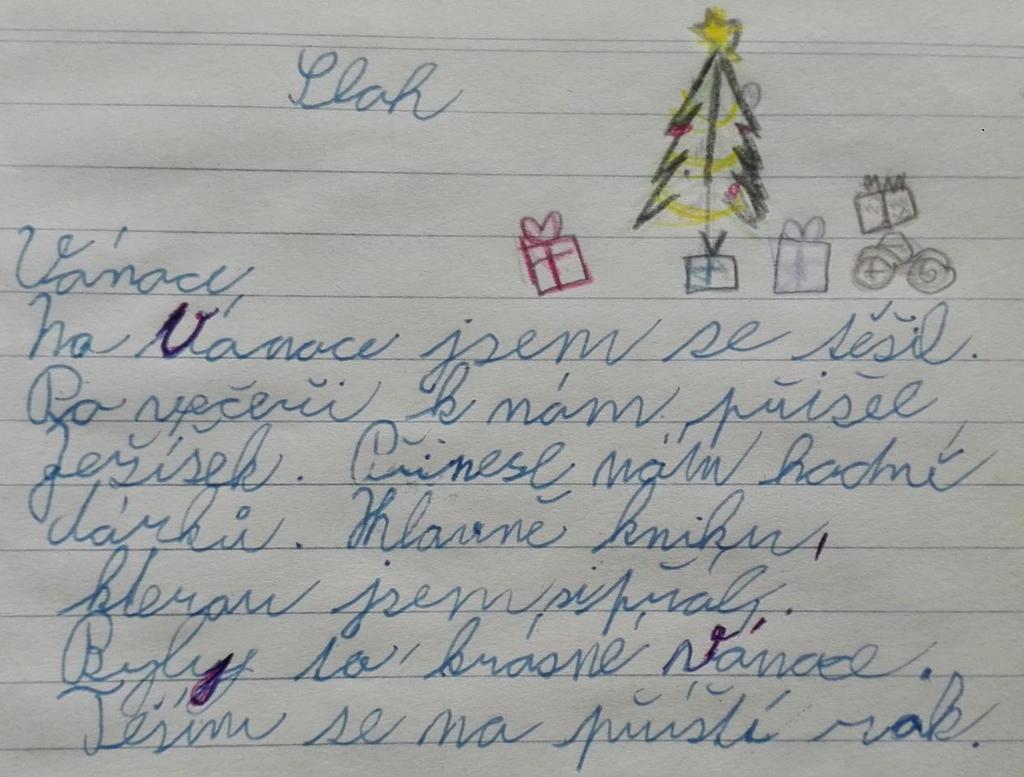 Sloh
Vánoce
Na Vánoce jsem se těšil.
Po večeři k nám přišel
Ježíšek. Přinesl nám hodně
dárků. Hlavně knihu,
kterou jsem si přál.
Byly to krásné Vánoce.
Těším se na příští rok.